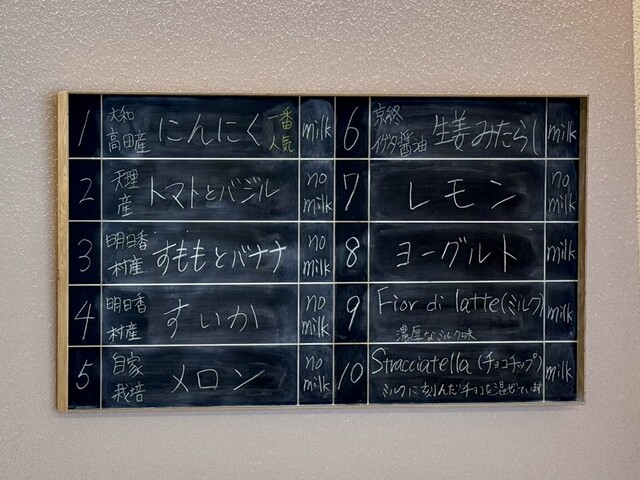 1 大和高田産 にんにく 一番人気 milk
2 天理産 トマトとバジル no milk
3 明日香村産 すももとバナナ no milk
4 明日香村産 すいか no milk
5 自家栽培 メロン no milk
6 京終イゲタ醤油 生姜みたらし milk
7 レモン no milk
8 ヨーグルト milk
9 Fior di latte(ミルク) milk
濃厚なミルク味
10 Stracciatella (チョコチップ) milk
ミルクに刻んだチョコを混ぜています